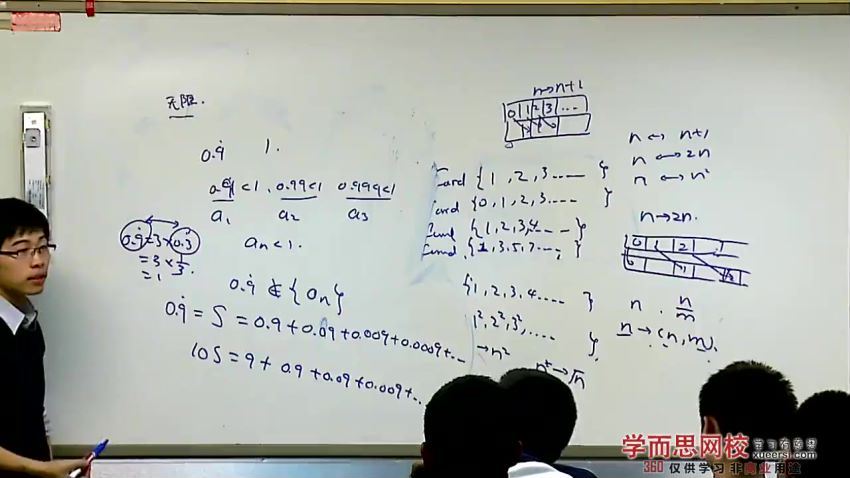 无限.
0.9̇ 1.
0.9<1, 0.99<1 0.999<1
a₁ a₂ a₃
0.9̇=3×0.3̇
=3×1/3.
=1
aₙ<1.
0.9̇ ∉ {aₙ}
0.9̇ = S = 0.9+0.09+0.009+0.0009+...
10S = 9+0.9+0.09+0.009+...
n→n+1
0 1 2 3 ...
Card {1, 2, 3 ...... }
Card {0, 1, 2, 3 ...... }
Card {1, 2, 3, 4 ...... }
Card {1, 3, 5, 7 ...... }
{1, 2, 3, 4 ...... }
1², 2², 3², ......
→n²
n²→√n
n ↔ n+1
n ↔ 2n
n ↔ n²
n→2n.
0 1 2
n . n/m
n → (n, m).
学而思网校 学习有意思
xueersi.com
360 仅供学习 非商业用途